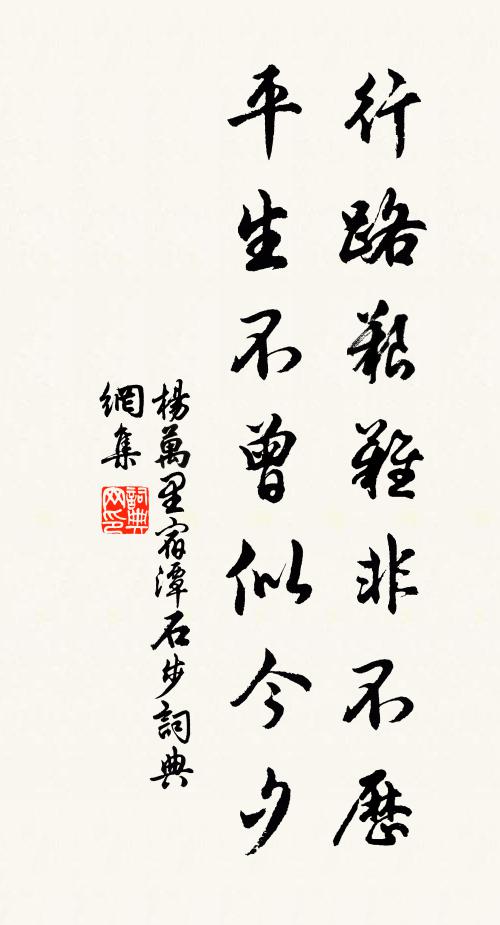 行路艱難非不歷
平生不曾似今夕
楊萬里宿潭石步詞典
網集
詞典
网印